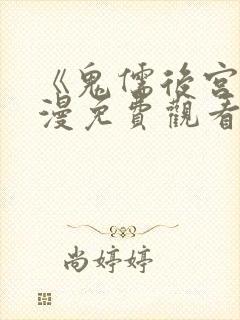 《鬼儒後宮
漫免費觀看
尚婷婷